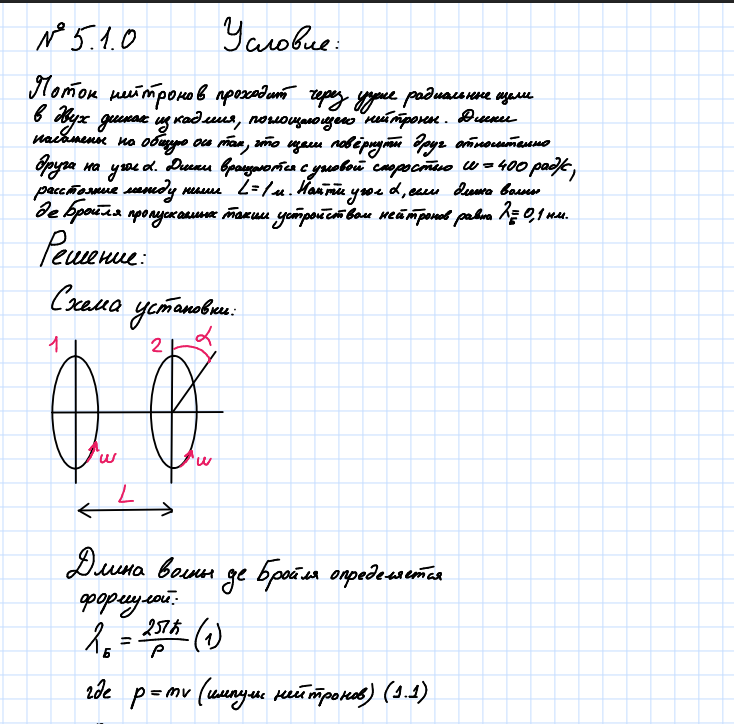 № 5.1.0 Условие:
Поток нейтронов проходит через узкие радиальные щели
в двух дисках из кадмия, поглощающего нейтроны. Диски
насажены на общую ось так, что щели повёрнуты друг относительно
друга на угол α. Диски вращаются с угловой скоростью ω = 400 рад/с,
расстояние между ними L = 1 м. Найти угол α, если длина волны
де Бройля пропускаемых таким устройством нейтронов равна λ_Б = 0,1 нм.
Решение:
Схема установки:
1 2 α
ω ω
L
Длина волны де Бройля определяется
формулой:
λ_Б = 2πħ/p (1)
где p = mv (импульс нейтронов) (1.1)